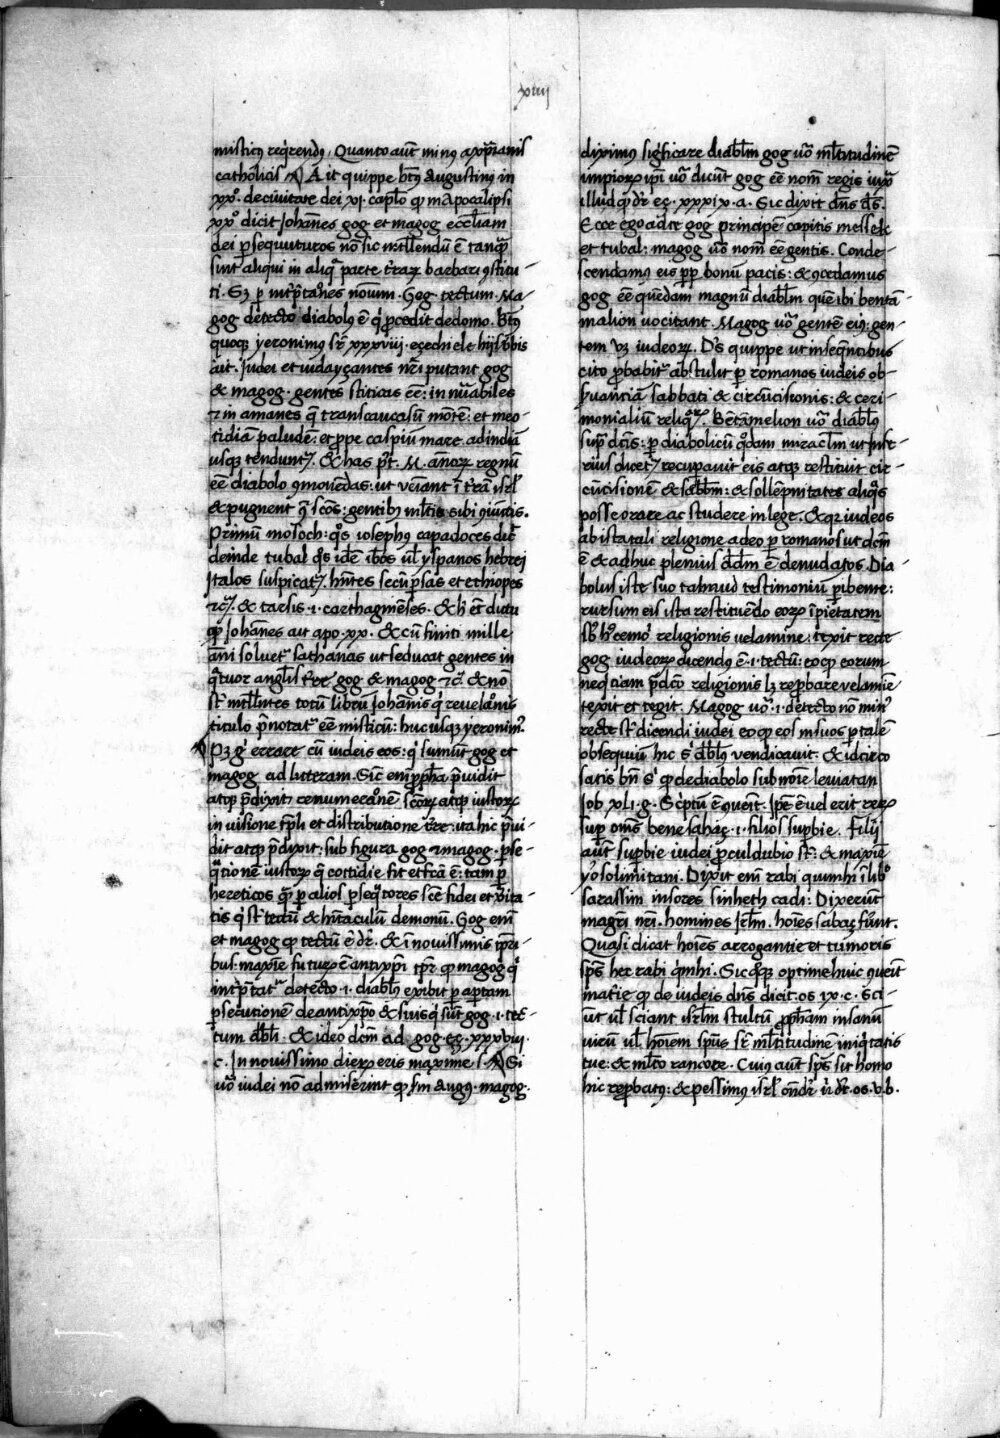 xiiij
misticus reqrendus. Quanto aut minus a xprianis
catholicis Ait quippe btus Augustinus in
xxo. de civitate dei xi. caplo q in apocalipsi
xxo dicit Johannes gog et magog eccliam
dei psequuturos no sic intellendu e tanq
sint aliqui in aliq parte terrar barbari 9stitu
ti. S3 p intptatones noium. Gog tectum. Ma-
gog detecto diabolus e q pcedit de domo. Btus
quoq yeronimus sr xxxviii. ezechiele hijs vbis
ait. Judei et iudayçantes nri putant gog
& magog. gentes sciticas ee: innuabiles
& inmanes q trans caucasu monte: et meo-
tidia palude: et prope caspiu mare. ad india
usq tendunt. & has pt. M. annor regnu
ee diabolo 9mouedas: ut veniant i tra isrl
& pugnent 9 scos: gentib3 mltis sibi 9iuctis.
Primu mosoch: qs iosephus capadoces dic
deinde tubal qs ide iberos ul yspanos hebrei
Italos suspicat. hntes secu psas et ethiopes
& tarsis .i. carthagineses. & h est dictu
q Johanes ait apo. xx. & cu finiti mille
ani soluet sathanas ut seducat gentes in
qtuor anglis gog & magog & no
st intllentes totu libru Johanis q reuelatonis
titulo pnotat ee misticum: huc usq yeronim9.
P3 g errare cu iudeis eos: q sumut gog et
magog ad litteram. Sic em ppha puidit
atq pdixit renumeratone scor atq iustor
in visione templi et distributione tre: ita hic pui-
dit atq pdixit. sub figura gog & magog. pse-
qtione iustor q cottidie fit et fca e: tam p
hereticos q p alios pseqtores sce fidei et vita-
tis q st tectu & hitaculu demonu. Gog em
et magog q tectu e dr. & i nouissimis tpri-
bus. maxime futur e antixpi tpr q magog q
intptat detecto .i. diablus exibit p aptam
psecutione de antixpo & suis q sut gog .i. tec-
tum dbli. & ideo dcm ad gog. eç. xxxviij
.c. In nouissimo dierum eris maxime Si
uo iudei no admiserint q sm augus. magog.
diximus sigficare diablm gog uo mltitudine
impior ipi uo dicut gog ee nom regis iuxta
illud q dr eç. xxxix. a. Sic dixit dns ds.
Ecce ego ad te gog principe capitis messek
et tubal: magog uo nom ee gentis. Conde-
scendamus eis pp bonu pacis: & 9cedamus
gog ee quedam magnu diablm que ibi benta-
malion uocitant. Magog uo gente ei9: gen-
tem v3 iudeor. Ds quippe ut in seqntibus
cito pbabit abstulit p romanos iudeis ob-
suantia sabbati & circucisionis: & ceri-
monialiu reliqr. Bentamelion uo diabls
sup dcis: p diabolicu qodam miraclm ut infe-
rius dicet recupauit eis atq restituit cir-
cucisione & sabbm: & sollepnitates aliqs
posse orare ac studere in lege. & qr iudeos
ab ista tali religione adeo p romanos ut dcm
e & adhuc plenius dedm e denudatos. Dia-
bolus iste suo talmud testimoniu phibente:
rursum eis ista restituendo eor ipietatem
sb hcemo religionis velamine: texit recte
gog iudeor dicendus e .i. tectu: eo q eorum
neqciam pdco religionis l3 reprobare velamie
texit et tegit. Magog uo .i. detecto no min9
recte st dicendi iudei eo q eos in suos p tale
obsequium hic s dbls vendicauit. & idcirco
satis bn s q de diabolo sub noie leuiatan
Job xli. g. Scptu e 9uenit. Ipse e uel erit rex
sup oms bene sahaç .i. filios supbie. Filij
aut supbie iudei pculdubio st: & maxie
yosolimitani. Dixit em rabi quimhi i libo
sarassim in sores sinheth cadi: Dixerut
magri nri. homines Jrlm. hoies sabaç fuut.
Quasi dicat hoies arrogantie et tumoris
sps hec rabi qmhi. Sic qq optime huic 9uenit
matie q de iudeis dns dicit. os ix. c. Sci-
ut ul sciant isrlm stultu ppham insanu
uiru ul hoiem spus sr mltitudine iniqtatis
tue: & mlto rancore. Cuius aut sps sit homo
hic reprobatus: & pessimus isrl ondr u dr. os. v. b.